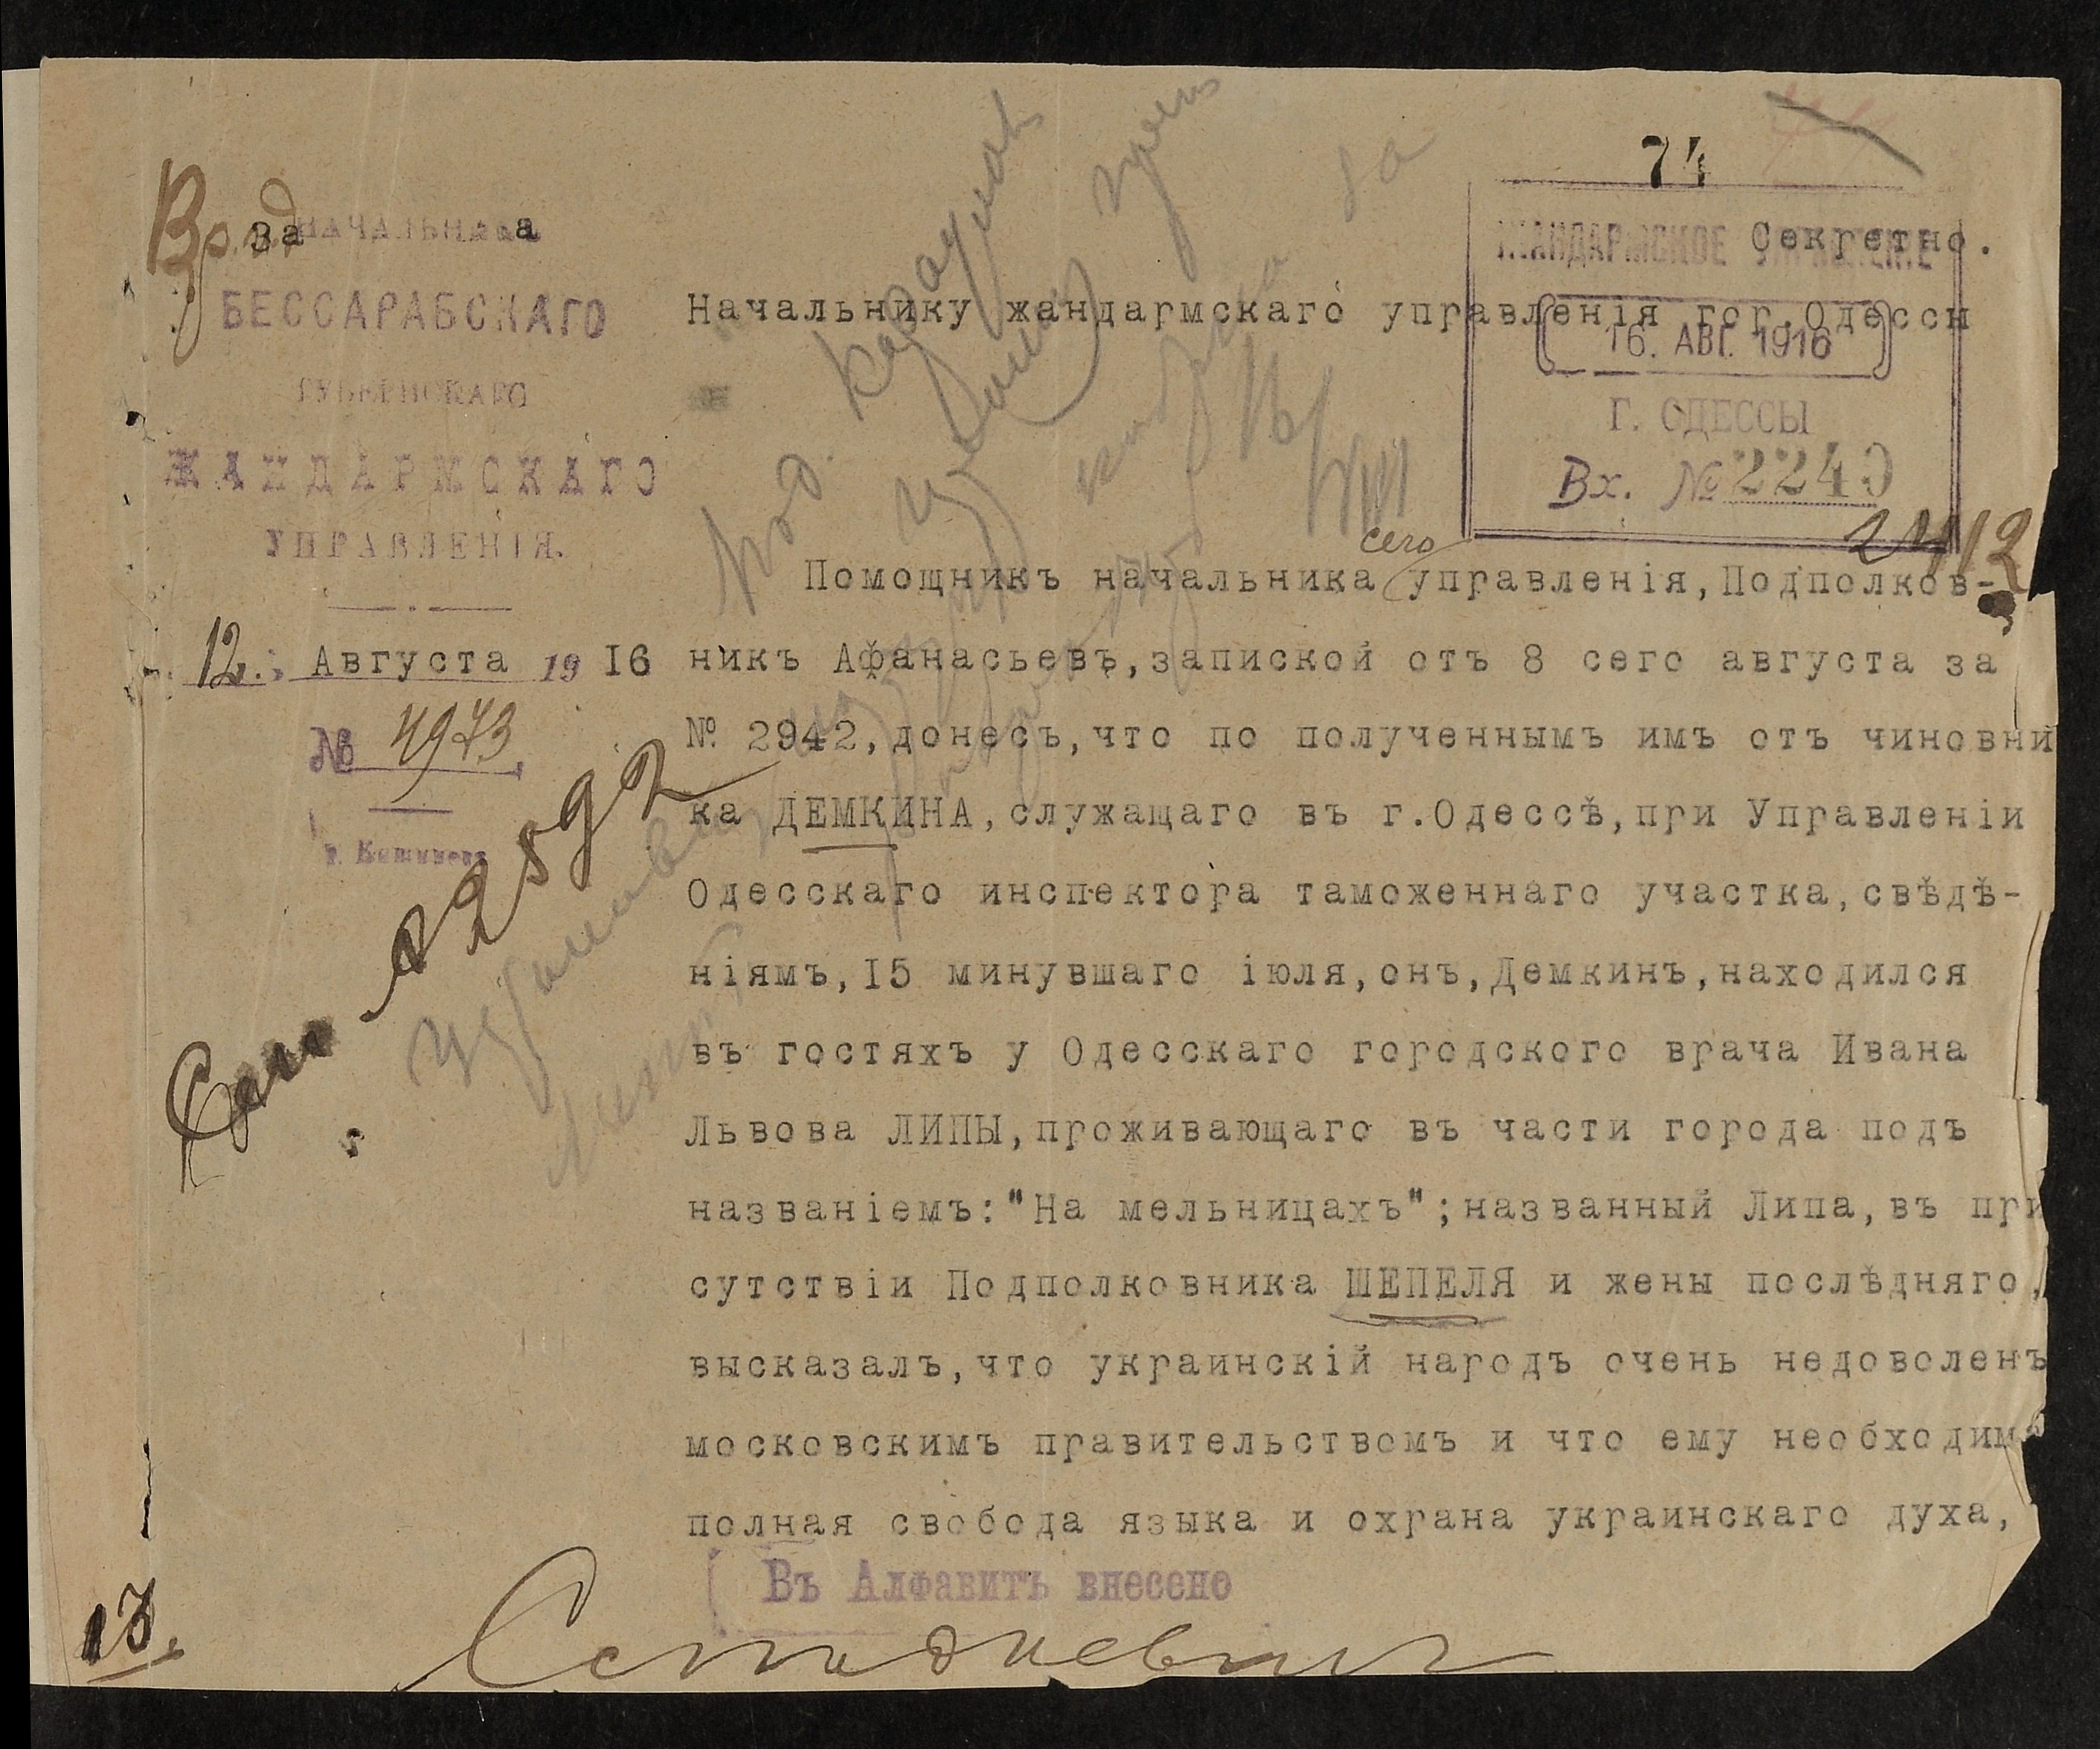 74
За НАЧАЛЬНИКА
БЕССАРАБСКАГО
ГУБЕРНСКАГО
ЖАНДАРМСКАГО
УПРАВЛЕНІЯ.
12 Августа 1916
№ 4973
г. Кишиневъ
ЖАНДАРМСКОЕ УПРАВЛЕНІЕ
16. АВГ. 1916
Г. ОДЕССЫ
Вх. № 2240
Секретно.
Начальнику жандармскаго управленія гор.Одессы
Помощникъ начальника сего управленія,Подполков-
никъ Афанасьевъ,запиской отъ 8 сего августа за
№ 2942,донесъ,что по полученнымъ имъ отъ чиновни
ка ДЕМКИНА,служащаго въ г.Одессѣ,при Управленіи
Одесскаго инспектора таможеннаго участка,свѣдѣ-
ніямъ,I5 минувшаго іюля,онъ,Демкинъ,находился
въ гостяхъ у Одесскаго городского врача Ивана
Львова ЛИПЫ,проживающаго въ части города подъ
названіемъ:"На мельницахъ";названный Липа,въ при
сутствіи Подполковника ШЕПЕЛЯ и жены послѣдняго,
высказалъ,что украинскій народъ очень недоволенъ
московскимъ правительствомъ и что ему необходима
полная свобода языка и охрана украинскаго духа,
Въ Алфавитъ внесено
13.